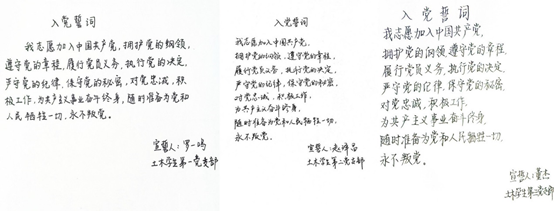 入党誓词
我志愿加入中国共产党，拥护党的纲领，
遵守党的章程，履行党员义务，执行党的决定，
严守党的纪律，保守党的秘密，对党忠诚，积
极工作，为共产主义事业奋斗终身，随时准备为党和
人民牺牲一切，永不叛党。
宣誓人：罗一鸣
土木学生第一党支部
入党誓词
我志愿加入中国共产党，
拥护党的纲领，遵守党的章程，
履行党员义务，执行党的决定，
严守党的纪律，保守党的秘密，
对党忠诚，积极工作，
为共产主义奋斗终身，
随时准备为党和人民牺牲一切，
永不叛党。
宣誓人：
土木学生第二党支部
入党誓词
我志愿加入中国共产党，
拥护党的纲领，遵守党的章程，
履行党员义务，执行党的决定，
严守党的纪律，保守党的秘密，
对党忠诚，积极工作，
为共产主义事业奋斗终身，
随时准备为党和人民牺牲一切，
永不叛党。
宣誓人：董杰
土木学生第三党支部